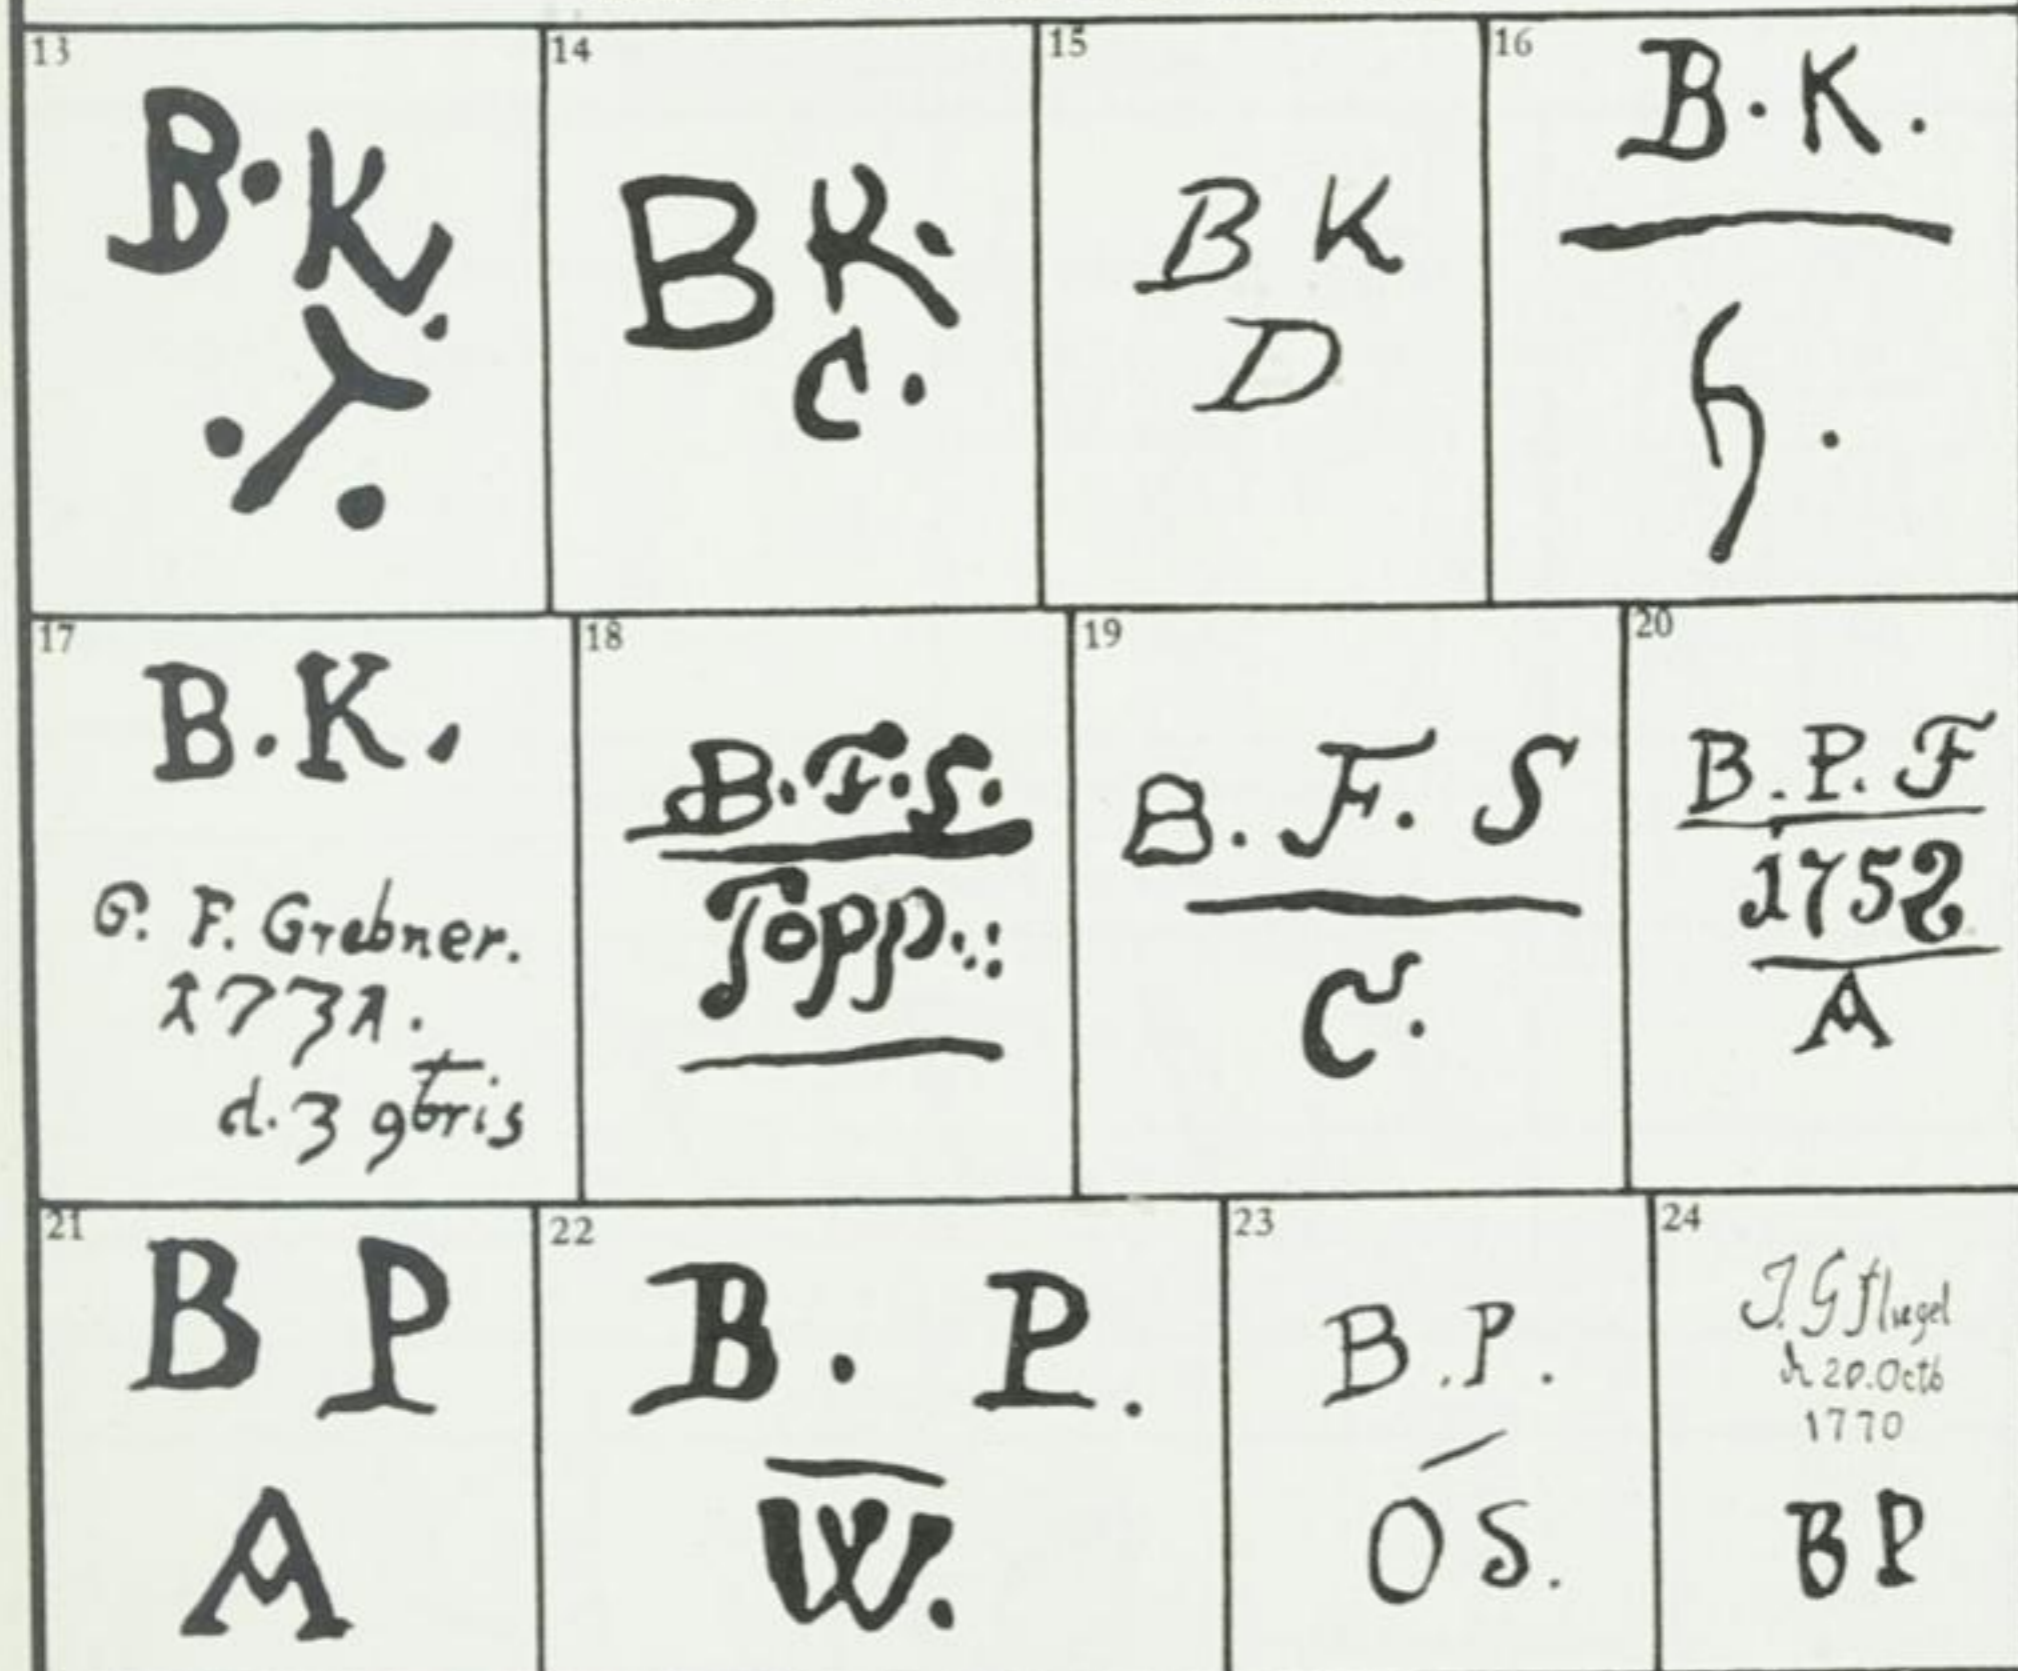 13
B. K.
. Y .
14
B K.
C.
15
B K
D
16
B. K.
17
B. K.
G. F. Grebner.
1731.
d. 3 9bris
18
B. F. S.
Topp.
19
B. F. S
C.
20
B. P. F
1752
A
21
B P
A
22
B. P.
W.
23
B. P.
O S.
24
J. G fliegel
20. Octb
1770
B P